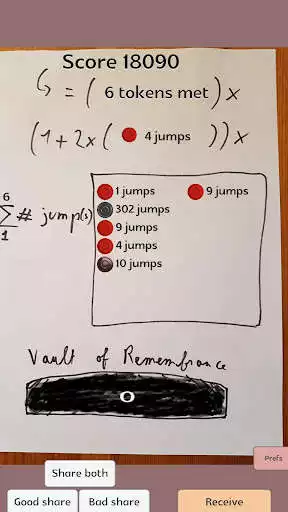 Score 18090
G = ( 6 tokens met ) x
(1 + 2 x ( 4 jumps )) x
6
∑ # jump(s)
1
1 jumps
9 jumps
302 jumps
9 jumps
4 jumps
10 jumps
Vault of Remembrance
0
Prefs
Share both
Good share
Bad share
Receive